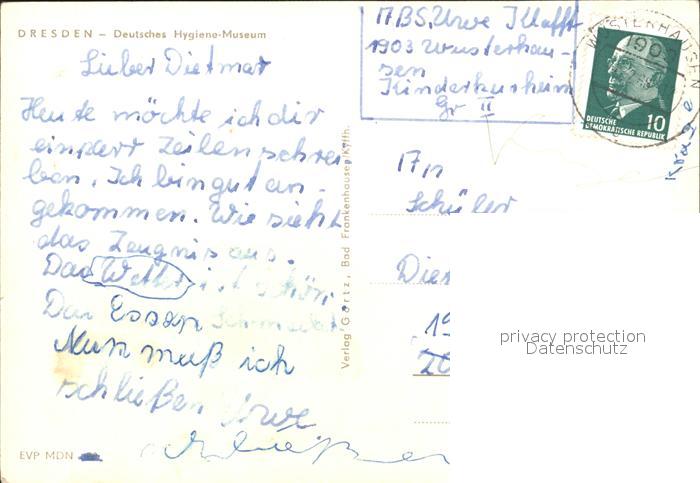 DRESDEN – Deutsches Hygiene-Museum
Lieber Dietmar
Heute möchte ich dir
ein parr Zeilen schrei
ben. Ich bin gut an-
gekommen. Wie sieht
das Zeugnis aus.
Das Wetter ist schön.
Das Essen schmeckt.
Nun muß ich
schließen Uwe
EVP MDN
Verlag Görtz, Bad Frankenhausen/Kyffh.
ABS. Uwe Klafft
1903 Wusterhau-
sen
Kinderkurheim
Gr II
WUSTERHAUSEN
1903
DEUTSCHE
DEMOKRATISCHE REPUBLIK
10
An
Schüler
Die
19
privacy protection
Datenschutz